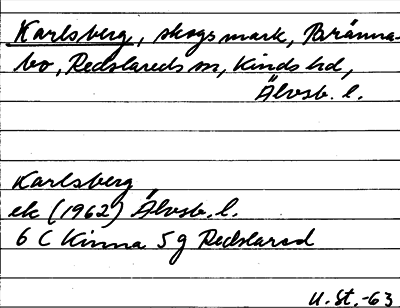 Karlsberg, skogsmark, Bränna-
bo, Redslareds sn, Kinds hd,
Älvsb. l.
Karlsberg
ek (1962) Älvsb. l.
6 C Kinna 5 g Redslared
U. St. -63